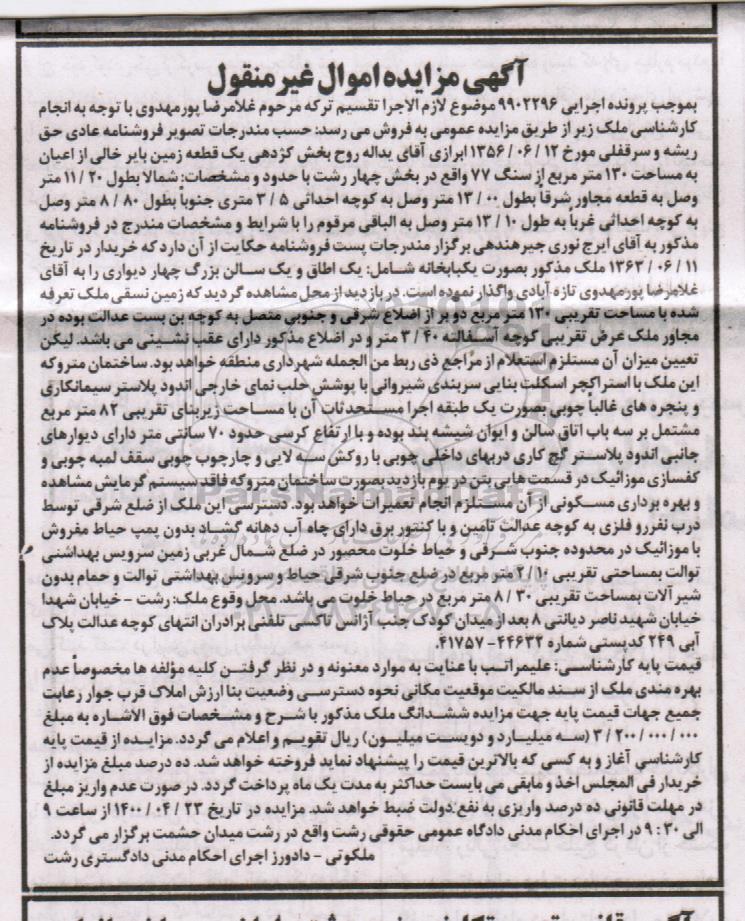 آگهی مزایده اموال غیر منقول
بموجب پرونده اجرایی ۹۹۰۲۲۹۶ موضوع لازم الاجرا تقسیم ترکه مرحوم غلامرضا پورمهدوی با توجه به انجام
کارشناسی ملک زیر از طریق مزایده عمومی به فروش می رسد: حسب مندرجات تصویر فروشنامه عادی حق
ریشه و سرقفلی مورخ ۱۲ / ۰۶ / ۱۳۵۶ ابرازی آقای یداله روح بخش کژدهی یک قطعه زمین بایر خالی از اعیان
به مساحت ۱۳۰ متر مربع از سنگ ۷۷ واقع در بخش چهار رشت با حدود و مشخصات: شمالا بطول ۲۰ / ۱۱ متر
وصل به قطعه مجاور شرقاً بطول ۰۰ / ۱۳ متر وصل به کوچه احداثی ۵ / ۳ متری جنوباً بطول ۸۰ / ۸ متر وصل
به کوچه احداثی غرباً به طول ۱۰ / ۱۳ متر وصل به الباقی مرقوم را با شرایط و مشخصات مندرج در فروشنامه
مذکور به آقای ایرج نوری جیرهندهی برگزار مندرجات پست فروشنامه حکایت از آن دارد که خریدار در تاریخ
۱۱ / ۰۶ / ۱۳۶۳ ملک مذکور بصورت یکبابخانه شامل: یک اطاق و یک سالن بزرگ چهار دیواری را به آقای
غلامرضا پورمهدوی تازه آبادی واگذار نموده است. در بازدید از محل مشاهده گردید که زمین نسقی ملک تعرفه
شده با مساحت تقریبی ۱۳۰ متر مربع دو بر از اضلاع شرقی و جنوبی متصل به کوچه بن بست عدالت بوده در
مجاور ملک عرض تقریبی کوچه آسفالته ۴۰ / ۳ متر و در اضلاع مذکور دارای عقب نشینی می باشد. لیکن
تعیین میزان آن مستلزم استعلام از مراجع ذی ربط من الجمله شهرداری منطقه خواهد بود. ساختمان متروکه
این ملک با استراکچر اسکلت بنایی سربندی شیروانی با پوشش حلب نمای خارجی اندود پلاستر سیمانکاری
و پنجره های غالباً چوبی بصورت یک طبقه اجرا مستحدثات آن با مساحت زیربنای تقریبی ۸۲ متر مربع
مشتمل بر سه باب اتاق سالن و ایوان شیشه بند بوده و با ارتفاع کرسی حدود ۷۰ سانتی متر دارای دیوارهای
جانبی اندود پلاستر گچ کاری دربهای داخلی چوبی با روکش سه لایی و چارچوب چوبی سقف لمبه چوبی و
کفسازی موزائیک در قسمت هایی بتن در یوم بازدید بصورت ساختمان متروکه فاقد سیستم گرمایش مشاهده
و بهره برداری مسکونی از آن مستلزم انجام تعمیرات خواهد بود. دسترسی این ملک از ضلع شرقی توسط
درب نفررو فلزی به کوچه عدالت تامین و با کنتور برق دارای چاه آب دهانه گشاد بدون پمپ حیاط مفروش
با موزائیک در محدوده جنوب شرقی و حیاط خلوت محصور در ضلع شمال غربی زمین سرویس بهداشتی
توالت بمساحتی تقریبی ۱۰ / ۲ متر مربع در ضلع جنوب شرقی حیاط و سرویس بهداشتی توالت و حمام بدون
شیر آلات بمساحت تقریبی ۳۰ / ۸ متر مربع در حیاط خلوت می باشد. محل وقوع ملک: رشت - خیابان شهدا
خیابان شهید ناصر دیانتی ۸ بعد از میدان کودک جنب آژانس تاکسی تلفنی برادران انتهای کوچه عدالت پلاک
آبی ۲۴۹ کدپستی شماره ۴۴۶۳۲ - ۴۱۷۵۷.
قیمت پایه کارشناسی: علیمراتب با عنایت به موارد معنونه و در نظر گرفتن کلیه مؤلفه ها مخصوصاً عدم
بهره مندی ملک از سند مالکیت موقعیت مکانی نحوه دسترسی وضعیت بنا ارزش املاک قرب جوار رعایت
جمیع جهات قیمت پایه جهت مزایده ششدانگ ملک مذکور با شرح و مشخصات فوق الاشاره به مبلغ
۰۰۰ / ۰۰۰ / ۲۰۰ / ۳ (سه میلیارد و دویست میلیون) ریال تقویم و اعلام می گردد. مزایده از قیمت پایه
کارشناسی آغاز و به کسی که بالاترین قیمت را پیشنهاد نماید فروخته خواهد شد. ده درصد مبلغ مزایده از
خریدار فی المجلس اخذ و مابقی می بایست حداکثر به مدت یک ماه پرداخت گردد. در صورت عدم واریز مبلغ
در مهلت قانونی ده درصد واریزی به نفع دولت ضبط خواهد شد. مزایده در تاریخ ۲۳ / ۰۴ / ۱۴۰۰ از ساعت ۹
الی ۳۰ : ۹ در اجرای احکام مدنی دادگاه عمومی حقوقی رشت واقع در رشت میدان حشمت برگزار می گردد.
ملکوتی - دادورز اجرای احکام مدنی دادگستری رشت